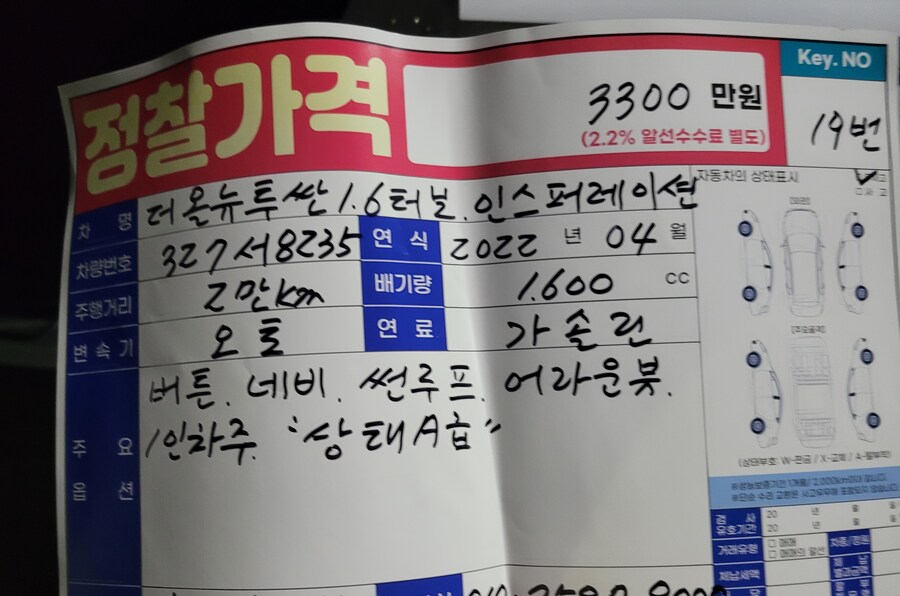 정찰가격
3300 만원
(2.2% 알선수수료 별도)
Key. NO
19번
차 명 더올뉴투싼 1.6터보. 인스퍼레이션
차량번호 327서8235 연 식 2022 년 04 월
주행거리 2만km 배기량 1.600 CC
변속기 오토 연 료 가솔린
주 요 옵 션
버튼. 네비. 썬루프. 어라운뷰.
1인차주. "상태A급"
자동차의 상태표시
[외관]
[주요골격]
(상태부호: W-판금 / X-교체 / A-탈부착)
검 사 유효기간
20 년 월
20 년 월
거래유형
□ 매매
□ 매매의 알선
차종/정원
체납세액